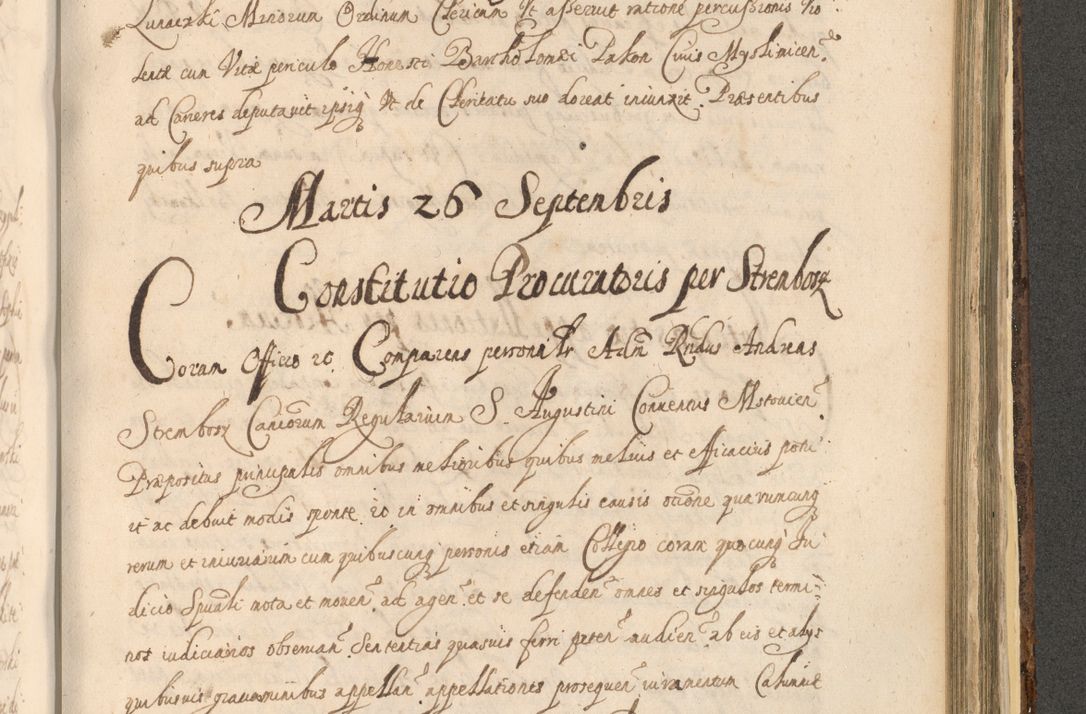 Minorum Ordinum Clericum It asseruit ratione percussionis vio
lentæ cum Vitæ periculo Honesti Bartholomæi Pakon Civis Myslimicen.
ad Carceres deputavit ipsiq Vt de Cleritatu suo doceat iniunxit. Præsentibus
quibus supra
Martis 26 Septembris
Constitutio Procuratoris per Strembosz
Coram Officio etc. Comparens personalr Adm Rndus Andreas
Strembosz Canicorum Regularium S. Augustini Conventus Mstovien.
Præpositus principalis omnibus melioribus quibus melius et efficacius potu
it ac debuit modis sponte etc in omnibus et singulis causis occione quarumcunq
rerum et iniuriarum cum quibuscunq personis etiam Collegio coram quocunq Iu
dicio Spuali mota et moven. ad agen. et se defenden. omnes et singulos termi
nos iudiciarios observan. Sententias quasvis ferri peten. audien. ab eis et alys
quibusvis gravaminibus appellan. appellationes prosequen. iuramentum Calumniæ